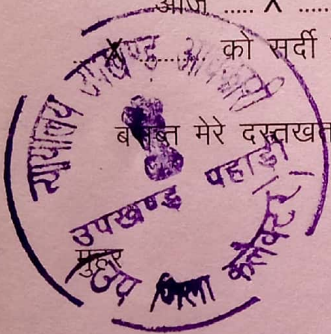 आज ..... X .....
X ........ को सर्दी
बसब्त मेरे दस्तखत
मुहर
न्यायालय उपखण्ड अधिकारी
उपखण्ड पहाड़ी
उप जिला कलेक्टर